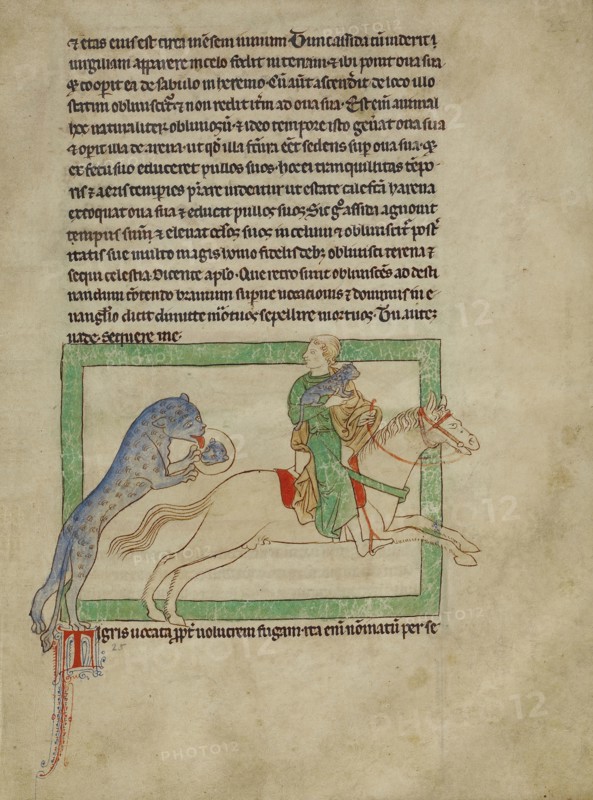 & etas eius est circa mēsem iunium. Tunc assida cū uiderit
uirgiliam apparere in celo fodit in terram & ibi ponit oua sua
& cooperit ea de sabulo in heremo. Cū aūt ascendit de loco illo
statim obliuiscit᷒ & non redit itm̄ ad oua sua. Est em̄ animal
hoc naturaliter obliuiosū & ideo tempore isto gen̄at oua sua
& op̄it illa de arena ut qd̄ illa factura eēt sedens sup̄ oua sua &
ex fetu suo educeret pullos suos hoc ei tranquillitas tēpo
ris & aeris temperies p̄stare uidentur ut estate calefacta harena
excoquat oua sua & educat pullos suos. Si gͦ assida agnouit
tempus suūm & eleuat oc̄los suos in celum & obliuiscit᷒ post᷒
ritatis sue multo magis homo fidelis debet obliuisci terena &
sequi celestia. Dicente aplō. Que retro sunt obliuiscēs ad desti
nandum cōtendo brauium supne uocationis & dominus in e
uanglīo dicit dimitte mōtuos sepellire mortuos. Tu autem
uade. sequere me.
Tigris uocata ppt᷒ uolucrem fugam. ita enī nōinatū per se
25
PHOTO12